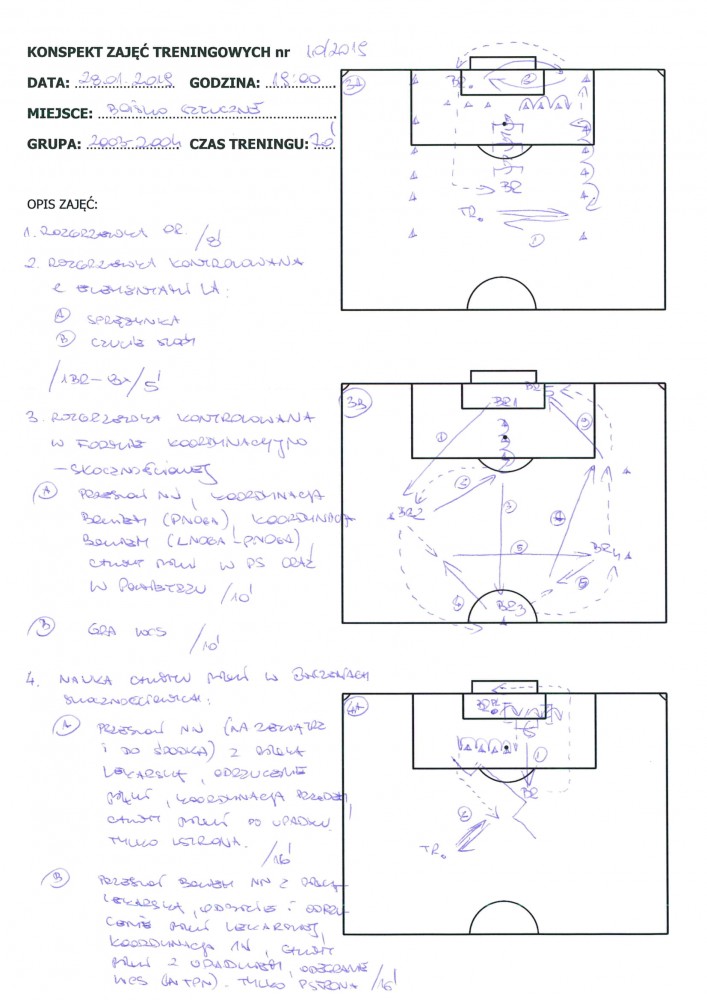 KONSPEKT ZAJĘĆ TRENINGOWYCH nr 10/2019
DATA: 28.01.2019 GODZINA: 18:00
MIEJSCE: BOISKO SZTUCZNE
GRUPA: 2003-2004 CZAS TRENINGU: 70'
OPIS ZAJĘĆ:
1. ROZGRZEWKA OR. /8'
2. ROZGRZEWKA KONTROLOWANA
Z ELEMENTAMI LA:
A SPRĘŻYNKA
B CZUCIE
/1BR- /5'
3. ROZGRZEWKA KONTROLOWANA
W FORMIE KOORDYNACYJNO
- SKOCZNOŚCIOWEJ
A PRZESKOK NN, KOORDYNACJA
BOKIEM (PNOGA), KOORDYNACJA
BOKIEM (LNOGA-PNOGA)
CHWYT PIŁKI W PS ORAZ
W POWIETRZU /10'
B GRA WCS /10'
4. NAUKA CHWYTU PIŁKI W ĆWICZENIACH
SKOCZNOŚCIOWYCH:
A PRZESKOK NN (NA ZEWNĄTRZ
I DO ŚRODKA) Z PIŁKĄ
LEKARSKĄ, ODRZUCENIE
PIŁKI, KOORDYNACJA PRZODEM,
CHWYT PIŁKI PO UPADKU.
TYLKO LSTRONA. /16'
B PRZESKOK BOKIEM NN Z PIŁKĄ
LEKARSKĄ, ODBICIE I ODRZU-
CENIE PIŁKI LEKARSKIEJ,
KOORDYNACJA 1N, CHWYT
PIŁKI Z UPADKIEM, ODEGRANIE
WCS (W TPN). TYLKO PSTRONA /16'
3A
BR.
2
BR
TR.
1
3B
BR1
BR5
1
3
2
BR2
3
4
5
BR4
4
5
BR3
4A
BR
1
BR
2
TR.